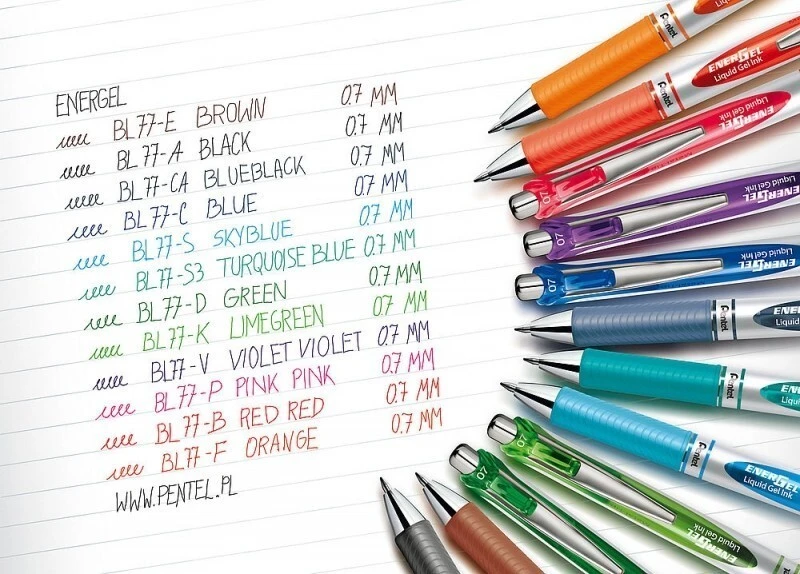 ENERGEL
BL77-E BROWN 0.7 MM
BL77-A BLACK 0.7 MM
BL77-CA BLUEBLACK 0.7 MM
BL77-C BLUE 0.7 MM
BL77-S SKYBLUE 0.7 MM
BL77-S3 TURQUOISE BLUE 0.7 MM
BL77-D GREEN 0.7 MM
BL77-K LIMEGREEN 0.7 MM
BL77-V VIOLET VIOLET 0.7 MM
BL77-P PINK PINK 0.7 MM
BL77-B RED RED 0.7 MM
BL77-F ORANGE 0.7 MM
WWW.PENTEL.PL
Pentel
Pentel
ENERGEL
Liquid Gel Ink
ENERGEL
Liquid Gel Ink
07
ENERGEL
Liquid Gel Ink
07
ENERGEL
Liquid Gel Ink
07
Pentel
ENERGEL
Liquid
Pentel
ENERGEL
Liquid Gel
Pentel
ENERGEL
Liquid Gel Ink
07
07